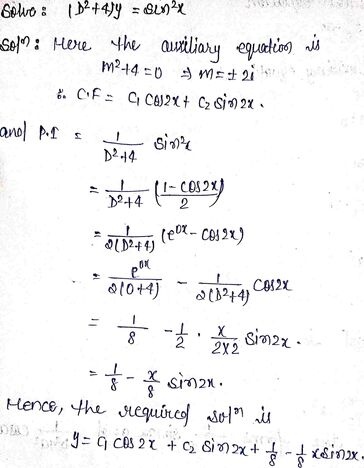 Solve: (D²+4)y = sin²x
Solⁿ: Here the auxiliary equation is
m²+4=0 ⇒ m=±2i
∴ C.F = C₁ cos2x + C₂ sin2x.
and P.I = 1/(D²+4) sin²x
= 1/(D²+4) ((1-cos2x)/2)
= 1/(2(D²+4)) (e^(0x) - cos2x)
= e^(0x)/(2(0+4)) - 1/(2(D²+4)) cos2x
= 1/8 - 1/2 · x/(2×2) sin2x.
= 1/8 - x/8 sin2x.
Hence, the required solⁿ is
y = C₁ cos2x + C₂ sin2x + 1/8 - 1/8 x sin2x.